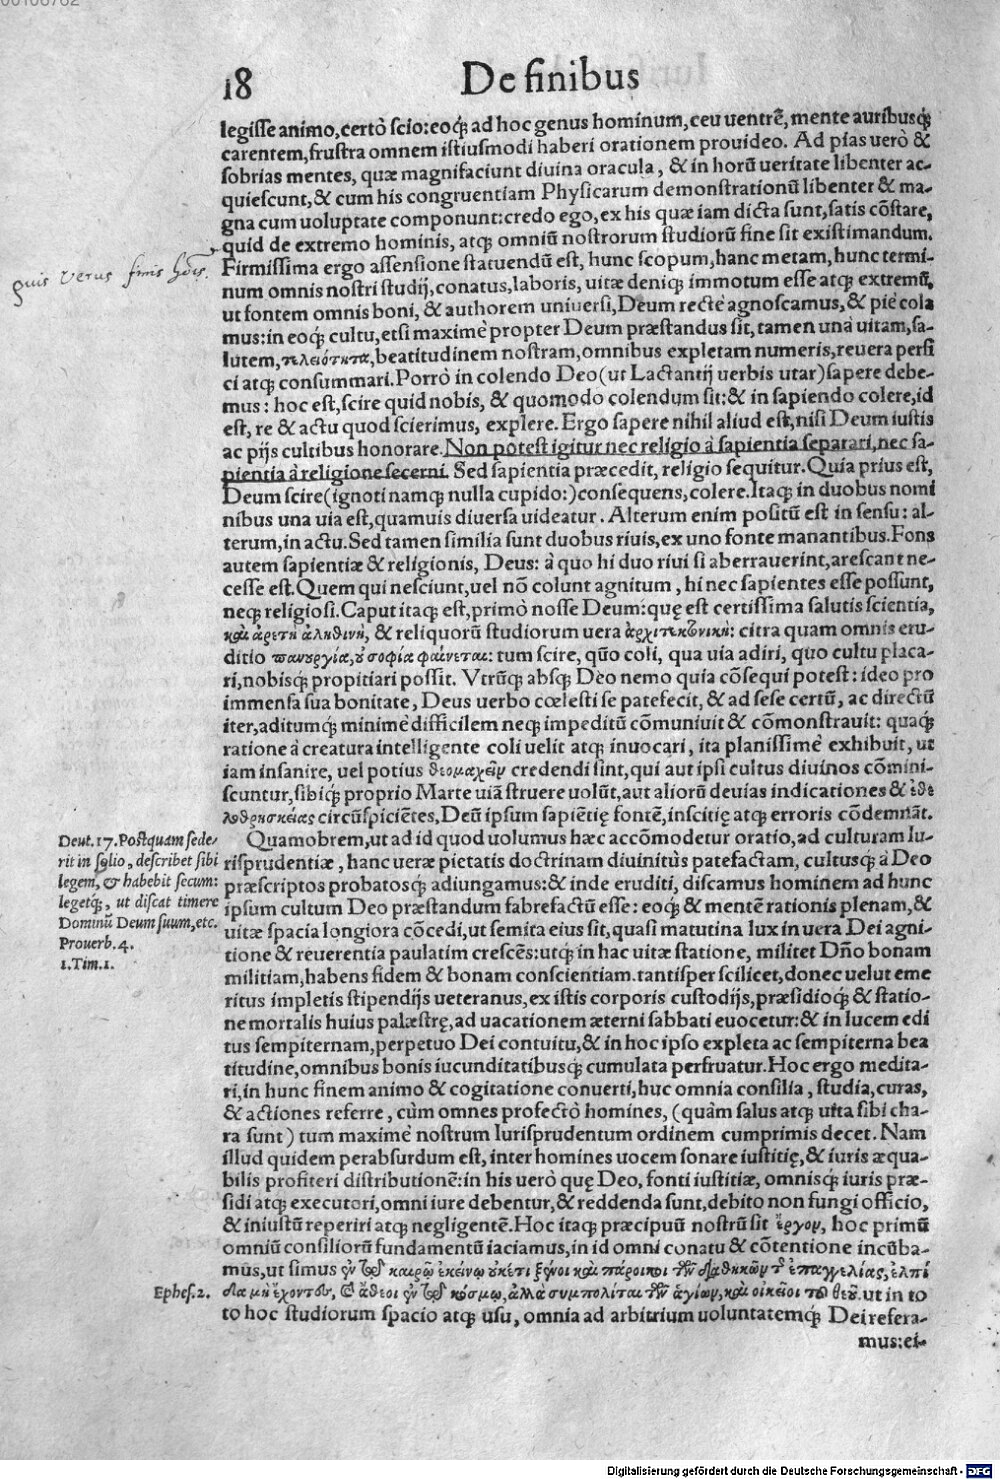 18 De finibus
legisse animo, certò scio: eoq́; ad hoc genus hominum, ceu uentrẽ, mente auribusq́;
carentem, frustra omnem istiusmodi haberi orationem prouideo. Ad pias uerò &
sobrias mentes, quæ magnifaciunt diuina oracula, & in horũ ueritate libenter ac-
quiescunt, & cum his congruentiam Physicarum demonstrationũ libenter & ma-
gna cum uoluptate componunt: credo ego, ex his quæ iam dicta sunt, satis cõstare,
quid de extremo hominis, atq; omniũ nostrorum studiorũ fine sit existimandum.
quis verus finis hõis.
Firmissima ergo assensione statuendũ est, hunc scopum, hanc metam, hunc termi-
num omnis nostri studij, conatus, laboris, uitæ deniq; immotum esse atq; extremũ,
ut fontem omnis boni, & authorem uniuersi, Deum rectè agnoscamus, & piè cola
mus: in eoq́; cultu, etsi maximè propter Deum præstandus sit, tamen unà uitam, sa-
lutem, τελειότητα, beatitudinem nostram, omnibus expletam numeris, reuera persi
ci atq; consummari. Porrò in colendo Deo (ut Lactantij uerbis utar) sapere debe-
mus: hoc est, scire quid nobis, & quomodo colendum sit: & in sapiendo colere, id
est, re & actu quod scierimus, explere. Ergo sapere nihil aliud est, nisi Deum iustis
ac pijs cultibus honorare. Non potest igitur nec religio à sapientia separari, nec sa-
pientia à religione secerni. Sed sapientia præcedit, religio sequitur. Quia prius est,
Deum scire (ignoti namq; nulla cupido:) consequens, colere. Itaq; in duobus nomi
nibus una uia est, quamuis diuersa uideatur. Alterum enim positũ est in sensu: al-
terum, in actu. Sed tamen similia sunt duobus riuis, ex uno fonte manantibus. Fons
autem sapientiæ & religionis, Deus: à quo hi duo riui si aberrauerint, arescant ne-
cesse est. Quem qui nesciunt, uel nõ colunt agnitum, hi nec sapientes esse possunt,
neq; religiosi. Caput itaq; est, primò nosse Deum: quę est certissima salutis scientia,
καὶ ἀρετὴ ἀληθινὴ, & reliquorũ studiorum uera ἀρχιτεκτονικὴ: citra quam omnis eru-
ditio πανουργία, οὐ σοφία φαίνεται: tum scire, quo coli, qua uia adiri, quo cultu placa-
ri, nobisq; propitiari possit. Vtrũq; absq; Deo nemo quia cõsequi potest: ideo pro
immensa sua bonitate, Deus uerbo cœlesti se patefecit, & ad sese certũ, ac directũ
iter, aditumq́; minimè difficilem neq; impeditũ cõmuniuit & cõmonstrauit: quaq́;
ratione à creatura intelligente coli uelit atq; inuocari, ita planissimè exhibuit, ut
iam insanire, uel potius θεομαχεῖν credendi sint, qui aut ipsi cultus diuinos cõmini-
scuntur, sibiq́; proprio Marte uiã struere uolũt, aut aliorũ deuias indicationes & ἐθε
λοθρησκείας circũspiciẽtes, Deũ ipsum sapiẽtię fontẽ, inscitię atq; erroris cõdemnãt.
Deut. 17. Postquam sede-
rit in solio, describet sibi
legem, & habebit secum:
legetq́;, ut discat timere
Dominũ Deum suum, etc.
Prouerb. 4.
1. Tim. 1.
Quamobrem, ut ad id quod uolumus hæc accõmodetur oratio, ad culturam Iu-
risprudentiæ, hanc ueræ pietatis doctrinam diuinitùs patefactam, cultusq; à Deo
præscriptos probatosq́; adiungamus: & inde eruditi, discamus hominem ad hunc
ipsum cultum Deo præstandum fabrefactũ esse: eoq; & mentẽ rationis plenam, &
uitæ spacia longiora cõcedi, ut semita eius sit, quasi matutina lux in uera Dei agni-
tione & reuerentia paulatim crescẽs: utq; in hac uitæ statione, militet Dño bonam
militiam, habens fidem & bonam conscientiam. tantisper scilicet, donec uelut eme
ritus impletis stipendijs ueteranus, ex istis corporis custodijs, præsidioq́; & statio-
ne mortalis huius palæstrę, ad uacationem æterni sabbati euocetur: & in lucem edi
tus sempiternam, perpetuo Dei contuitu, & in hoc ipso expleta ac sempiterna bea
titudine, omnibus bonis iucunditatibusq́; cumulata perfruatur. Hoc ergo medita-
ri, in hunc finem animo & cogitatione conuerti, huc omnia consilia, studia, curas,
& actiones referre, cùm omnes profectò homines, (quàm salus atq; uita sibi cha-
ra sunt) tum maximè nostrum Iurisprudentum ordinem cumprimis decet. Nam
illud quidem perabsurdum est, inter homines uocem sonare iustitię, & iuris æqua-
bilis profiteri distributionẽ: in his uerò quę Deo, fonti iustitiæ, omnisq́; iuris præ-
sidi atq; executori, omni iure debentur, & reddenda sunt, debito non fungi officio,
& iniustũ reperiri atq; negligentẽ. Hoc itaq; præcipuũ nostrũ sit ἔργον, hoc primũ
omniũ consiliorũ fundamentũ iaciamus, in id omni conatu & cõtentione incũba-
mus, ut simus ἐν τῷ καιρῷ ἐκείνῳ οὐκέτι ξένοι καὶ πάροικοι τῶν διαθηκῶν τῆς ἐπαγγελίας, ἐλπί
Ephes. 2.
δα μὴ ἔχοντες, καὶ ἄθεοι ἐν τῷ κόσμῳ, ἀλλὰ συμπολίται τῶν ἁγίων, καὶ οἰκεῖοι τοῦ θεοῦ. ut in to
to hoc studiorum spacio atq; usu, omnia ad arbitrium uoluntatemq́; Dei refera-
mus: ei-
Digitalisierung gefördert durch die Deutsche Forschungsgemeinschaft - DFG